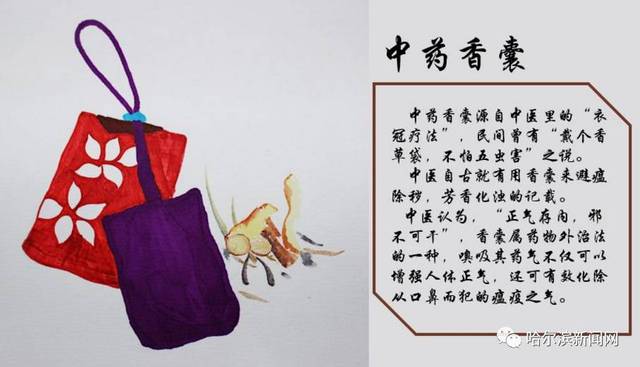 中药香囊
中药香囊源自中医里的“衣
冠疗法”，民间曾有“戴个香
草袋，不怕五虫害”之说。
中医自古就有用香囊来避瘟
除秽，芳香化浊的记载。
中医认为，“正气存内，邪
不可干”，香囊属药物外治法
的一种，嗅吸其药气不仅可以
增强人体正气，还可有效化除
从口鼻而犯的瘟疫之气。
哈尔滨新闻网